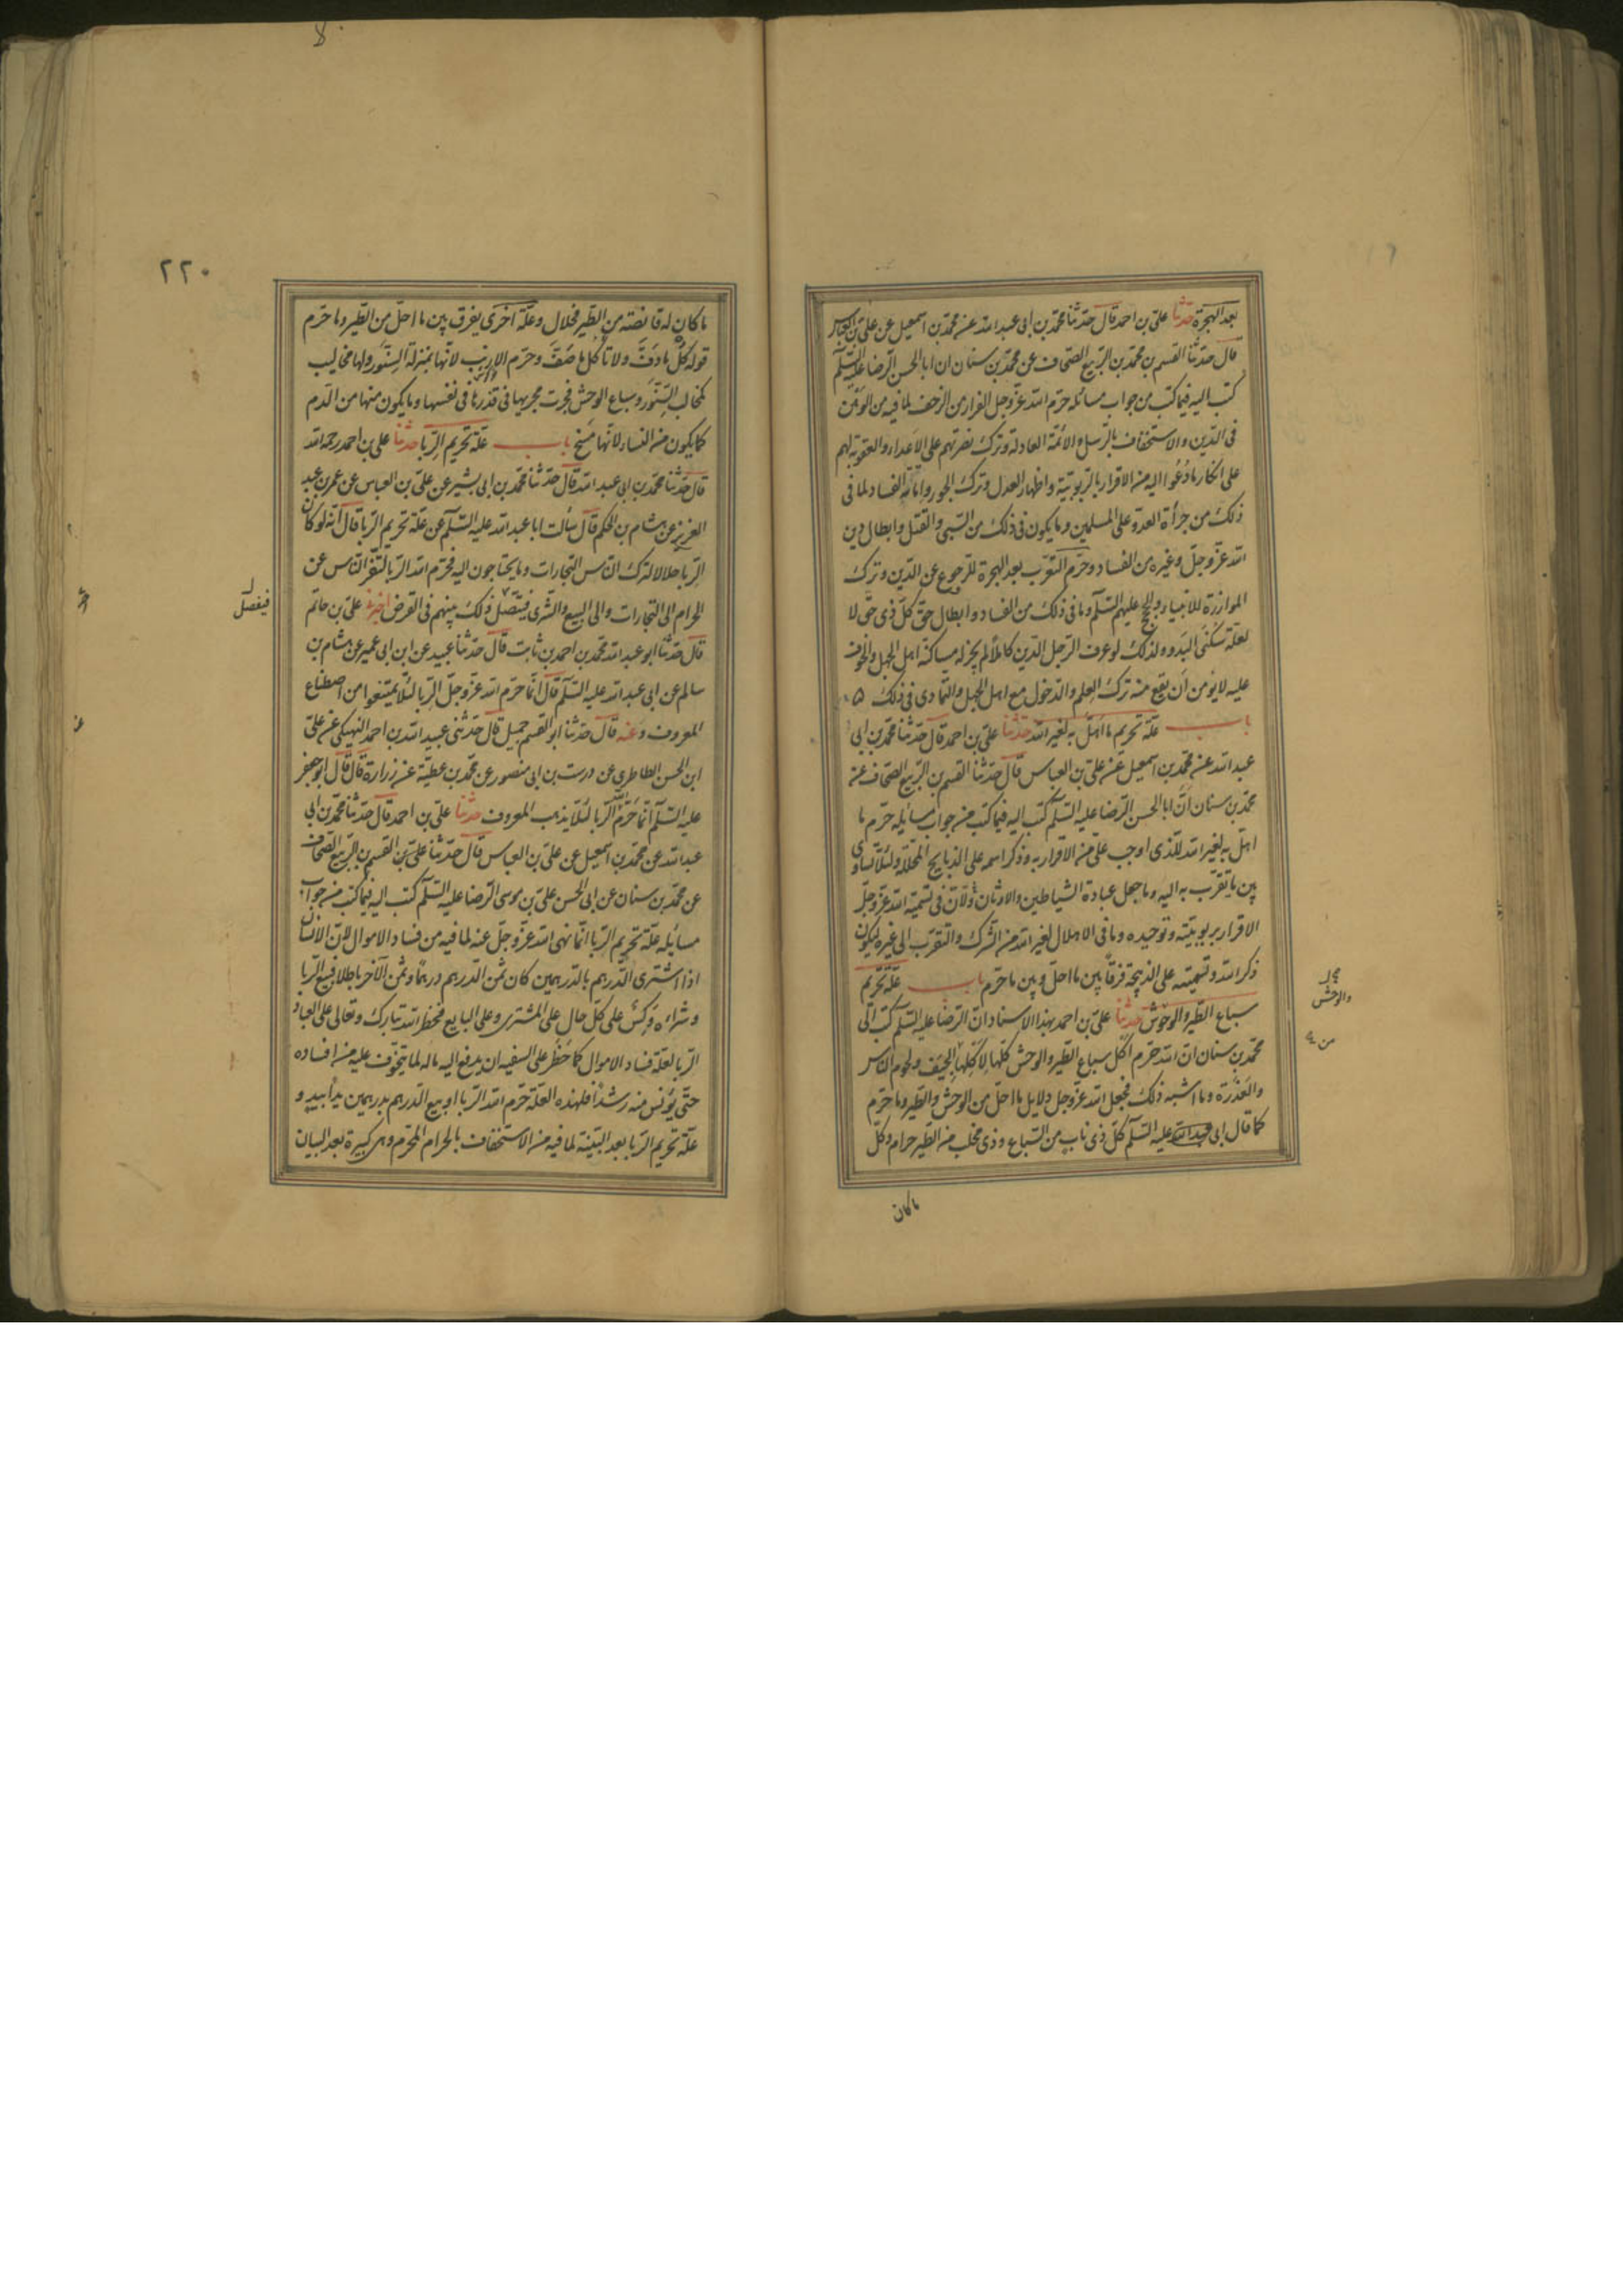 بعد الهجرة حدثنا علی بن احمد قال حدثنا محمد بن ابی عبد الله عن محمد بن اسمعیل عن علی بن العباس
قال حدثنا القسم بن محمد بن الربیع الصحاف عن محمد بن سنان ان ابا الحسن الرضا علیه السلم
کتب الیه فیما کتب من جواب مسائله حرم الله عز وجل الفرار من الزحف لما فیه من الوهن
فی الدین والاستخفاف بالرسل والائمة العادلة وترک نصرتهم علی الاعداء والعقوبة لهم
علی انکار ما دعوا الیه من الاقرار بالربوبیة واظهار العدل وترک الجور واماتة الفساد لما فی
ذلک من جرأة العدو علی المسلمین وما یکون فی ذلک من السبی والقتل وابطال دین
الله عز وجل وغیره من الفساد وحرم التعرب بعد الهجرة للرجوع عن الدین وترک
الموازرة للانبیاء والحجج علیهم السلم وما فی ذلک من الفساد وابطال حق کل ذی حق لا
لعلة سکنی البدو ولذلک لو عرف الرجل الدین کاملا لم یجز له مساکنة اهل الجهل والخوف
علیه لا یؤمن ان یقع منه ترک العلم والدخول مع اهل الجهل والتمادی فی ذلک
باب علة تحریم ما اهل به لغیر الله حدثنا علی بن احمد قال حدثنا محمد بن ابی
عبد الله عن محمد بن اسمعیل عن علی بن العباس قال حدثنا القسم بن الربیع الصحاف عن
محمد بن سنان ان ابا الحسن الرضا علیه السلم کتب الیه فیما کتب من جواب مسایله حرم ما
اهل به لغیر الله للذی اوجب علی من الاقرار به وذکر اسمه علی الذبایح المحللة ولئلا یساوی
بین ما یقرب به الیه وما جعل عبادة الشیاطین والاوثان ولان فی تسمیة الله عز وجل
الاقرار بربوبیته وتوحیده وما فی الاهلال لغیر الله من الشرک والتقرب الی غیره لیکون
ذکر الله وتسمیته علی الذبیحة فرقا بین ما احل وبین ما حرم باب علة تحریم
سباع الطیر والوحوش حدثنا علی بن احمد بهذا الاسناد ان الرضا علیه السلم کتب الی
محمد بن سنان ان الله حرم اکل سباع الطیر والوحش کلها لاکلها الجیف ولحوم الناس
والعذرة وما اشبه ذلک فجعل الله عز وجل دلایل ما احل من الوحش والطیر وما حرم
کما قال ابی علیه السلم کل ذی ناب من السباع وذی مخلب من الطیر حرام وکل
ما کان
والوحش
۲۲۰
ما کان له قانصة من الطیر فحلال وعلة اخری یفرق بین ما احل من الطیر وما حرم
قوله کل ما دف ولا تاکل ما صف وحرم الارنب لانها بمنزلة السنور ولها مخالیب
کمخالب السنور وسباع الوحش فجرت مجریها فی قذرها فی نفسها وما یکون منها من الدم
کما یکون من النساء لانها مسخ باب علة تحریم الربا حدثنا علی بن احمد رحمه الله
قال حدثنا محمد بن ابی عبد الله قال حدثنا محمد بن ابی بشیر عن علی بن العباس عن عمر بن عبد
العزیز عن هشام بن الحکم قال سألت ابا عبد الله علیه السلم عن علة تحریم الربا قال انه لو کان
الربا حلالا لترک الناس التجارات وما یحتاجون الیه فحرم الله الربا لتفر الناس عن
الحرام الی التجارات والی البیع والشری فیتصل ذلک بینهم فی القرض اخبرنی علی بن حاتم
قال حدثنا ابو عبد الله محمد بن احمد بن ثابت قال حدثنا عبید عن ابن ابی عمیر عن هشام بن
سالم عن ابی عبد الله علیه السلم قال انما حرم الله عز وجل الربا لئلا یمتنعوا من اصطناع
المعروف وعنه قال حدثنا ابو القسم حمیل قال حدثنی عبید الله بن احمد النهیکی عن علی
ابن الحسن الطاطری عن درست بن ابی منصور عن محمد بن عطیة عن زرارة قال قال ابو جعفر
علیه السلم انما حرم الله الربا لئلا یذهب المعروف حدثنا علی بن احمد قال حدثنا محمد بن ابی
عبد الله عن محمد بن اسمعیل عن علی بن العباس قال حدثنا علی بن القسم بن الربیع الصحاف
عن محمد بن سنان عن ابی الحسن علی بن موسی الرضا علیه السلم کتب الیه فیما کتب من جواب
مسایله علة تحریم الربا انما نهی الله عز وجل عنه لما فیه من فساد الاموال لان الانسان
اذا اشتری الدرهم بالدرهمین کان ثمن الدرهم درهما وثمن الآخر باطلا فبیع الربا
وشراءه وکس علی کل حال علی المشتری وعلی البایع فحظر الله تبارک وتعالی علی العباد
الربا لعلة فساد الاموال کما حظر علی السفیه ان یدفع الیه ماله لما یتخوف علیه من افساده
حتی یؤنس منه رشدا فلهذه العلة حرم الله الربا وبیع الدرهم بدرهمین یدا بید و
علة تحریم الربا بعد البینة لما فیه من الاستخفاف بالحرام المحرم وهی کبیرة بعد البیان
فیفصل